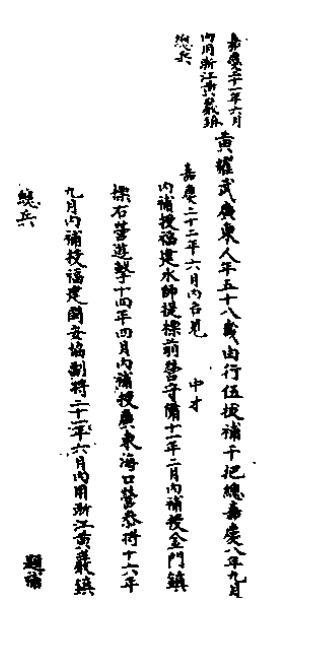 嘉慶二十一年六月
內用浙江黃巖鎮
總兵
黃耀武廣東人年五十八歲由行伍拔補千把總嘉慶八年九月
嘉慶二十二年六月內召見
中才
內補授福建水師提標前營守備十一年二月內補授金門鎮
標右營遊擊十四年四月內補授廣東海口營參將十六年
九月內補授福建閩安協副將二十一年六月內用浙江黃巖鎮
總兵
題補